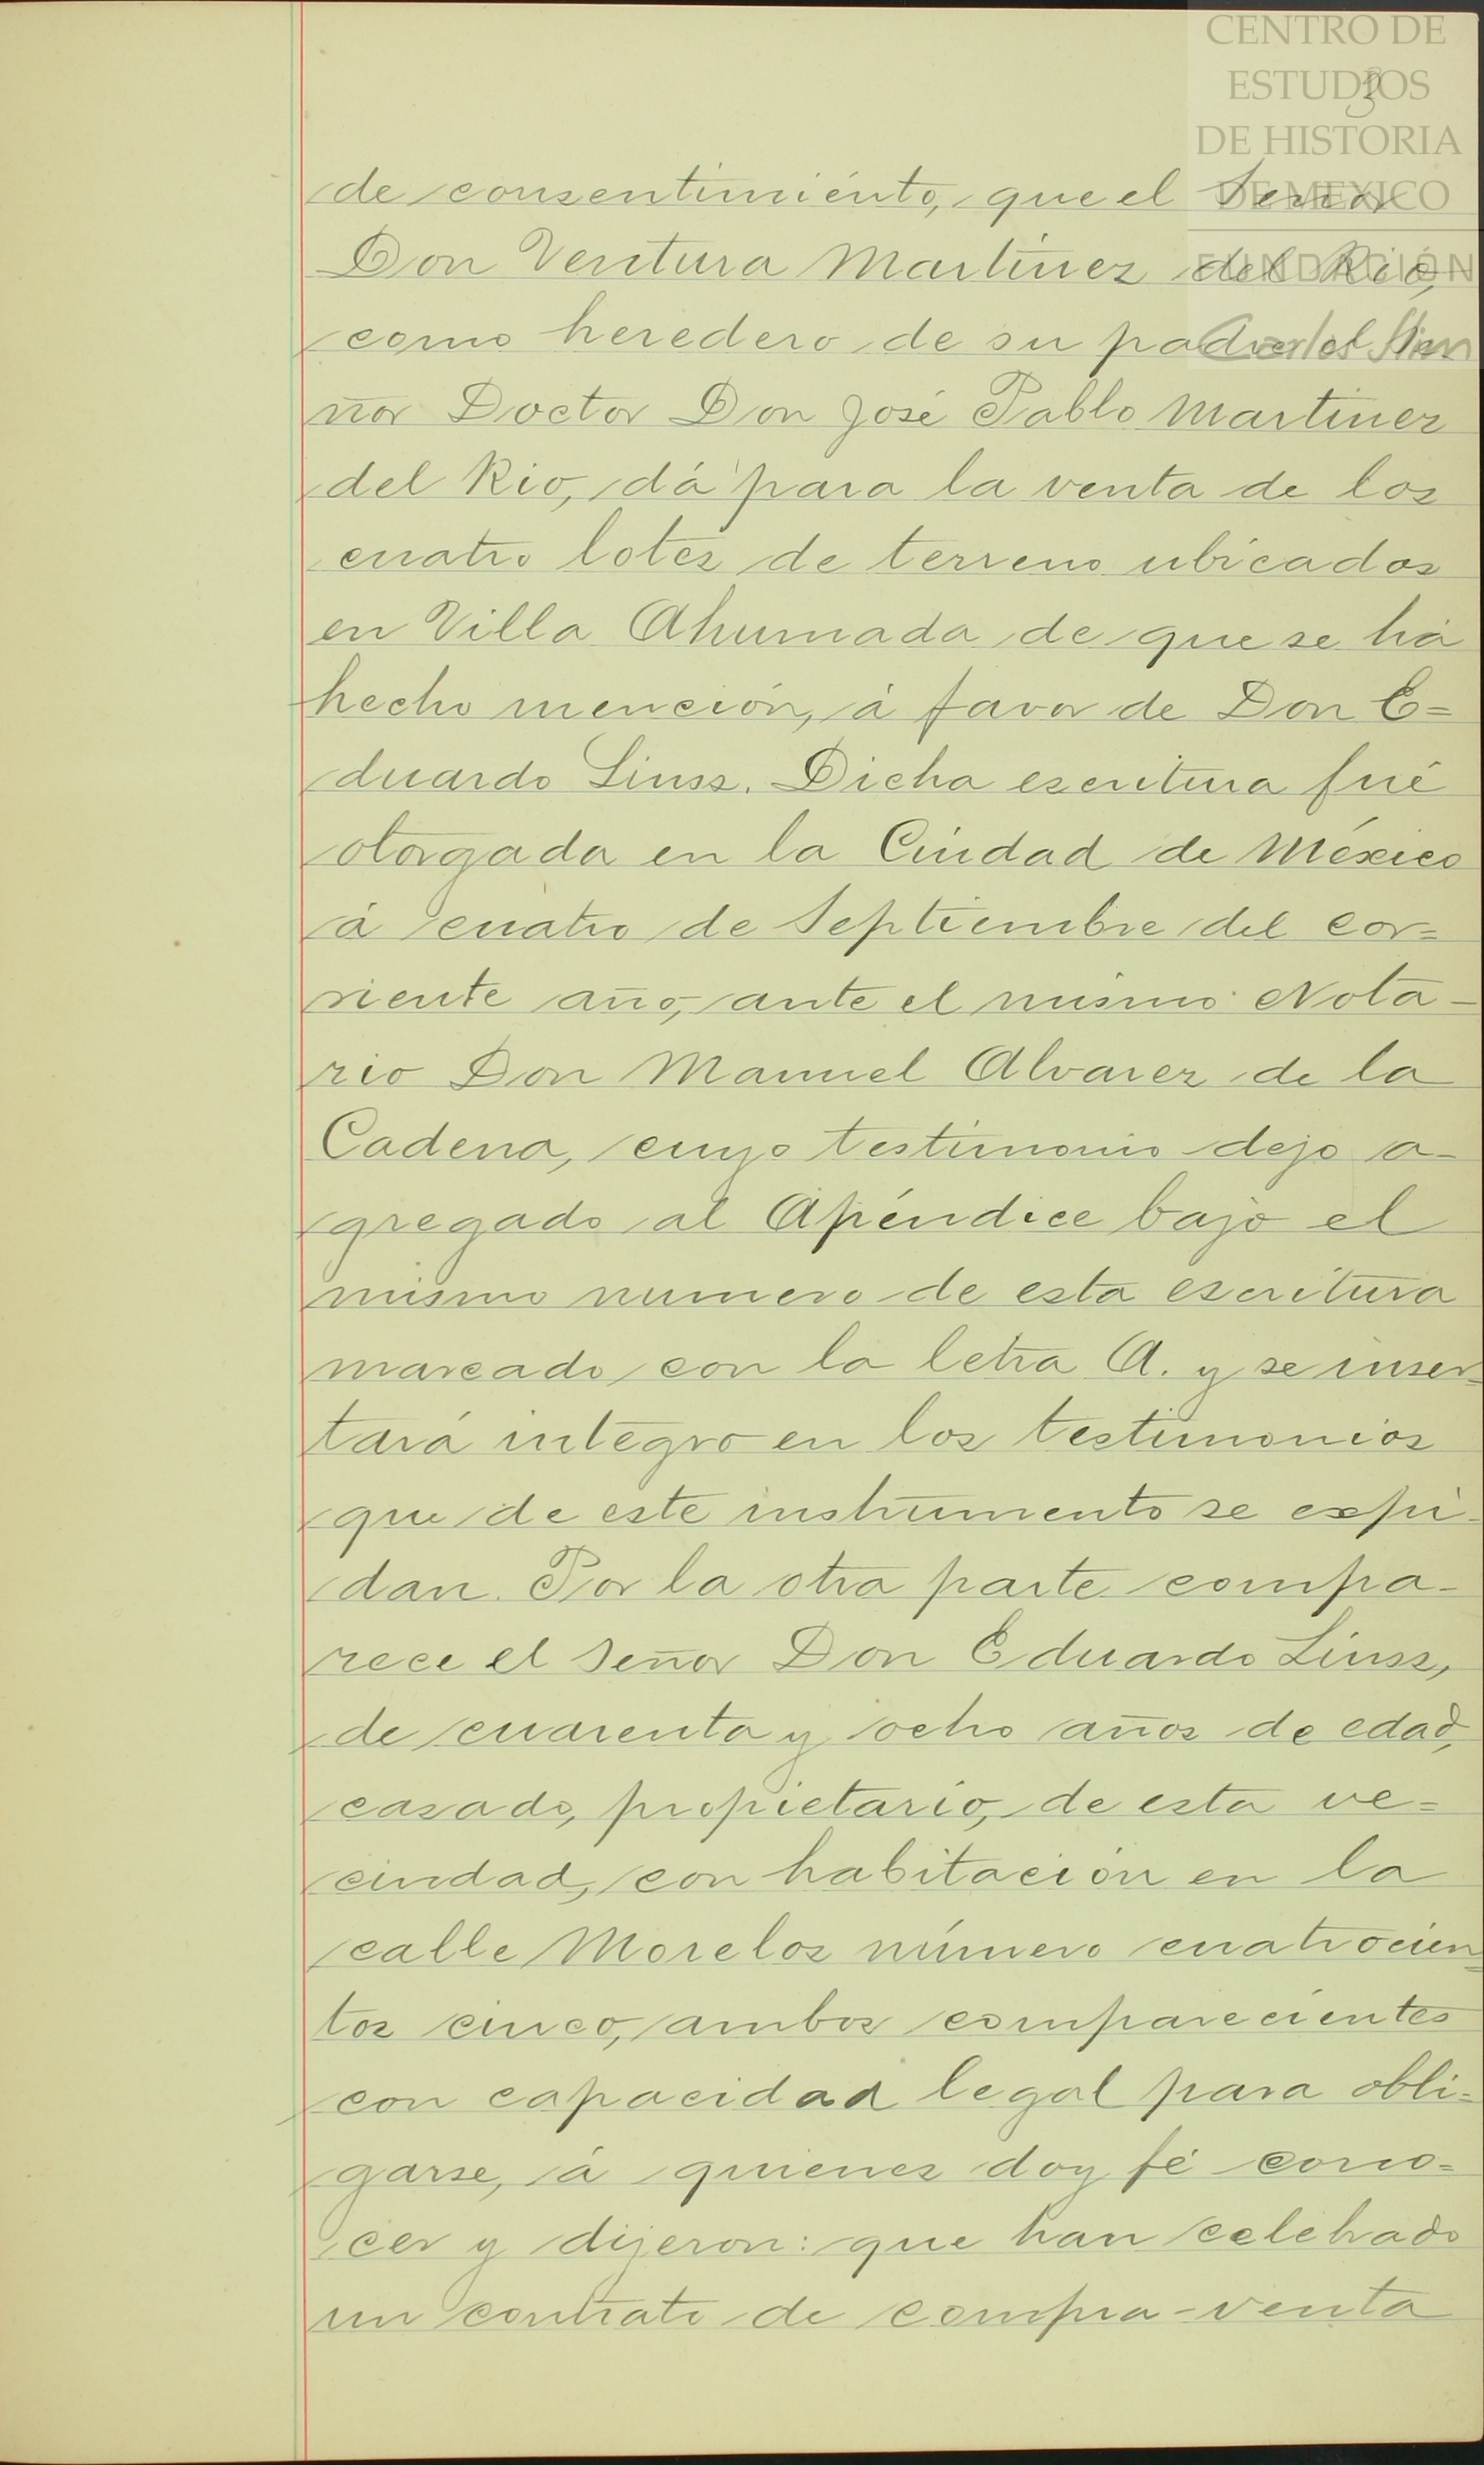 CENTRO DE
ESTUDIOS
DE HISTORIA
DE MEXICO
FUNDACIÓN
Carlos Slim
3
de consentimiénto, que el Señor
Don Ventura Martinez del Rio,
como heredero de su padre el Se
ñor Doctor Don José Pablo Martinez
del Rio, dá para la venta de los
cuatro lotes de terreno ubicados
en Villa Ahumada de que se há
hecho mención, á favor de Don E=
duardo Linss. Dicha escritura fué
otorgada en la Ciudad de México
á cuatro de Septiembre del cor=
riente año, ante el mismo Nota-
rio Don Manuel Alvarez de la
Cadena, cuyo testimonio dejo a-
gregado al Apéndice bajo el
mismo numero de esta escritura
marcado con la letra A. y se inser-
tará integro en los testimonios
que de este instrumento se expi-
dan. Por la otra parte compa-
rece el Señor Don Eduardo Linss,
de cuarenta y ocho años de edad,
casado, propietario, de esta ve=
cindad, con habitación en la
calle Morelos número cuatrocien=
tos cinco, ambos comparecientes
con capacidad legal para obli=
garse, á quienes doy fé cono=
cer y dijeron: que han celebrado
un contrato de compra-venta